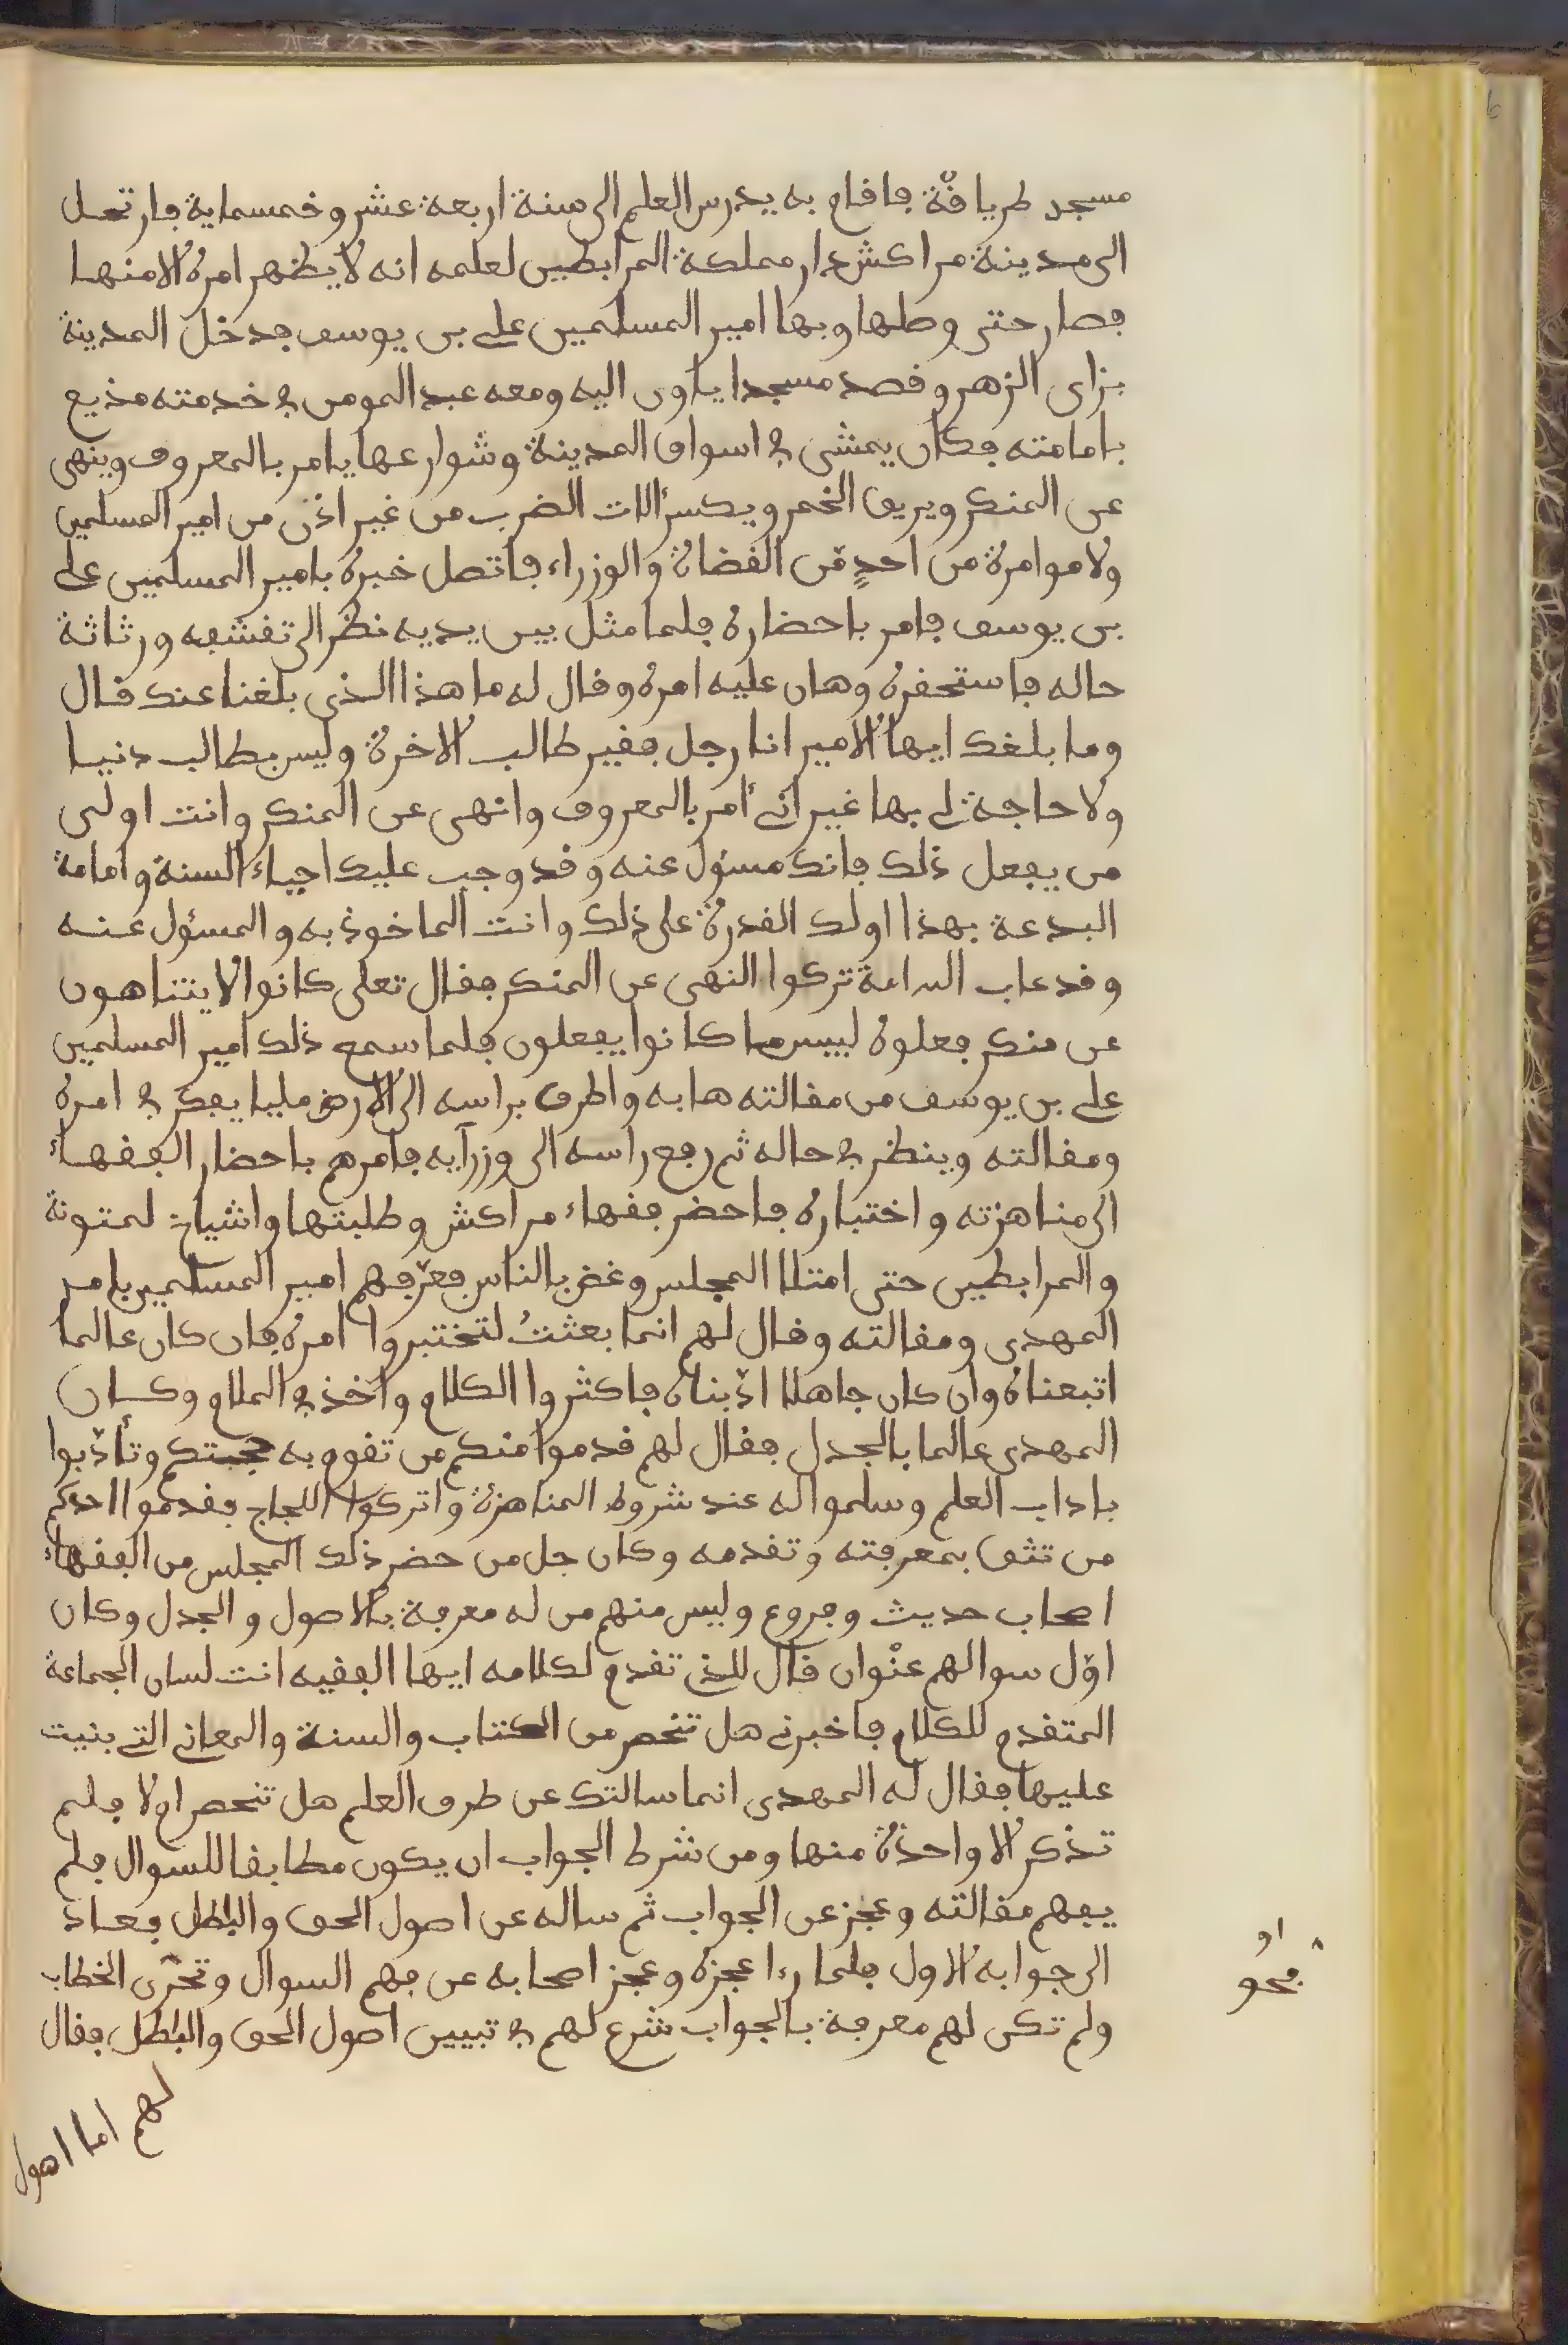 مسجد طريافة فاقام به يدرس العلم الى سنة اربعة عشر وخمسماية فارتحل
الى مدينة مراكش دار مملكة المرابطين لعلمه انه لا يظهر امره الا منها
فصار حتى وصلها وبها امير المسلمين على بن يوسف فدخل المدينة
بزاى الزهر وقصد مسجدا ياوى اليه ومعه عبد المومن في خدمته مذيع
بامامته فكان يمشى في اسواق المدينة وشوارعها يامر بالمعروف وينهى
عن المنكر ويريق الخمر ويكسر ءالات الضرب من غير اذن من امير المسلمين
ولا موامرة من احدٍ من القضاة والوزراء فاتصل خبره بامير المسلمين على
بن يوسف فامر باحضاره فلما مثل بين يديه نظر الى تقشفه ورثاثة
حاله فاستحقره وهان عليه امره وقال له ما هذا الذى بلغنا عنك قال
وما بلغك ايها الامير انا رجل فقير طالب الاخرة وليس بطالب دنيا
ولا حاجة لى بها غير انى ءامر بالمعروف وانهى عن المنكر وانت اولى
من يفعل ذلك فانك مسئول عنه وقد وجب عليك احياء السنة وامامة
البدعة بهذا اولك القدرة على ذلك وانت الماخوذ به والمسئول عنه
وقد عاب تركوا النهى عن المنكر فقال تعلى كانوا لا يتناهون
عن منكر فعلوه لبيس ما كانوا يفعلون فلما سمع ذلك امير المسلمين
على بن يوسف من مقالته هابه واطرق براسه الى الارض مليا يفكر في امره
ومقالته وينظر في حاله ثم رفع راسه الى وزرآيه فامرهم باحضار الفقهاء
الى مناهزته واختباره فاحضر فقهاء مراكش وطلبتها واشياخ لمتونة
والمرابطين حتى امتلا المجلس وغض بالناس فعرّفهم امير المسلمين بامر
المهدى ومقالته وقال لهم انما بعثتُ لتختبروا امره فان كان عالما
اتبعناه وان كان جاهلا ادّبناه فاكثروا الكلام واخذ في الملام وكان
المهدى عالما بالجدل فقال لهم قدموا منكم من تقوم به حجتكم وتأدّبوا
باداب العلم وسلموا له عند شروط المناهزة واتركوا اللجاج فقدموا احدكم
من تثق بمعرفته وتقدمه وكان جل من حضر ذلك المجلس من الفقهاء
اصحاب حديث وفروع وليس منهم من له معرفة بالاصول والجدل وكان
اوّل سوالهم عنْوان قال للذى تقدم لكلامه ايها الفقيه انت لسان الجماعة
المتقدم للكلام فاخبرنى هل تنحصر من الكتاب والسنة والمعانى التى بنيت
عليها فقال له المهدى انما سالتك عن طرق العلم هل تنحصر ام لا فلم
تذكر الا واحدة منها ومن شرط الجواب ان يكون مطابقا للسوال فلم
يفهم مقالته وعجز عن الجواب ثم ساله عن اصول الحق والباطل فعاد
الى جوابه الاول فلما رءا عجزه وعجز اصحابه عن فهم السوال وتحرّى الخطاب
ولم تكن لهم معرفة بالجواب شرع لهم في تبيين اصول الحق والباطل فقال
لهم اما اصول
او
فحو